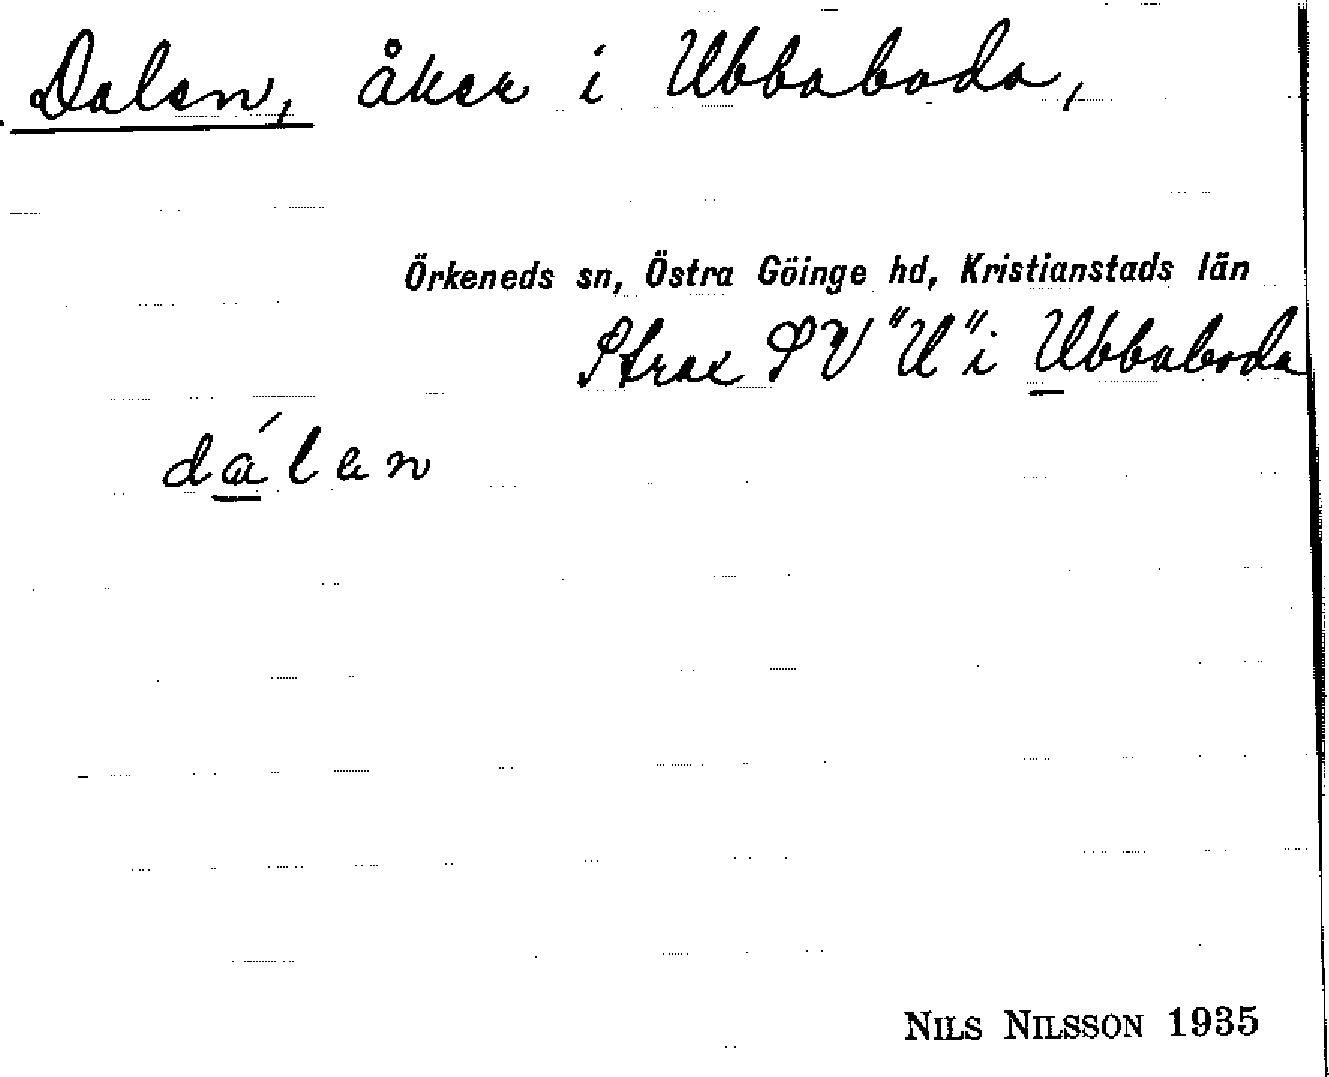 Dalen, åker i Ubbaboda,
Örkeneds sn, Östra Göinge hd, Kristianstads län
Strax SV "U" i Ubbaboda
dálen
NILS NILSSON 1935